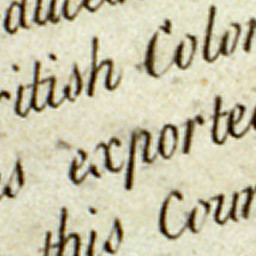 ritish Color
s exporte
this Cour